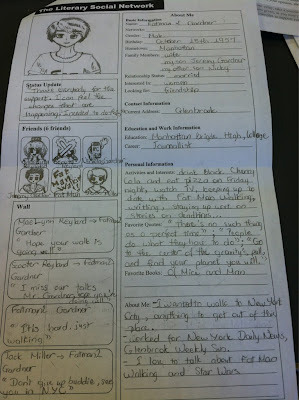 The Literary Social Network
About Me
Basic Information
Name: Fatman2 Gardner
Networks:
Sex: Male
Birthday: October 25th, 1957
Hometown: Manhattan
Family Members: wife
my son Jeremy Gardner
my other son Lucky
Relationship Status: married
Interested In: women
Looking for: friendship
Status Update
Thanks everybody for the
support. I can feel the
changes that are
happening.
Contact Information
Current Address: Glenbrook
Friends (6 friends)
Education and Work Information
Education: Manhattan Bridge High, College
Career: Journalist
Personal Information
Activities and Interests: drink Black Cherry
Cola and eat pizza on Friday
nights, watch TV, keeping up to
date with Fat Man Walking,
writing, staying up late on
stories on deadlines...
Favorite Quotes: "There's no such thing
as a perfect time"; "People
do what they have to do"; "Go
to the center of the gravity's pull,
and find your planet you will."
Favorite Books: Of Mice and Men
About Me: - I wanted to walk to New York
City, anything to get out of this
place.
- worked for New York Daily News,
Glenbrook Weekly Sun
- I love to talk about Fat Man
Walking and Star Wars
Wall
→ Fatman2
Gardner
"Hope your walk is
going well"
Scooter Keyland → Fatman2
Gardner
"I miss our talks
Mr. Gardner
Fatman2 Gardner
"It's hard, just
walking"
Jack Miller → Fatman2
Gardner
"Don't give up buddie, see
you in NYC"